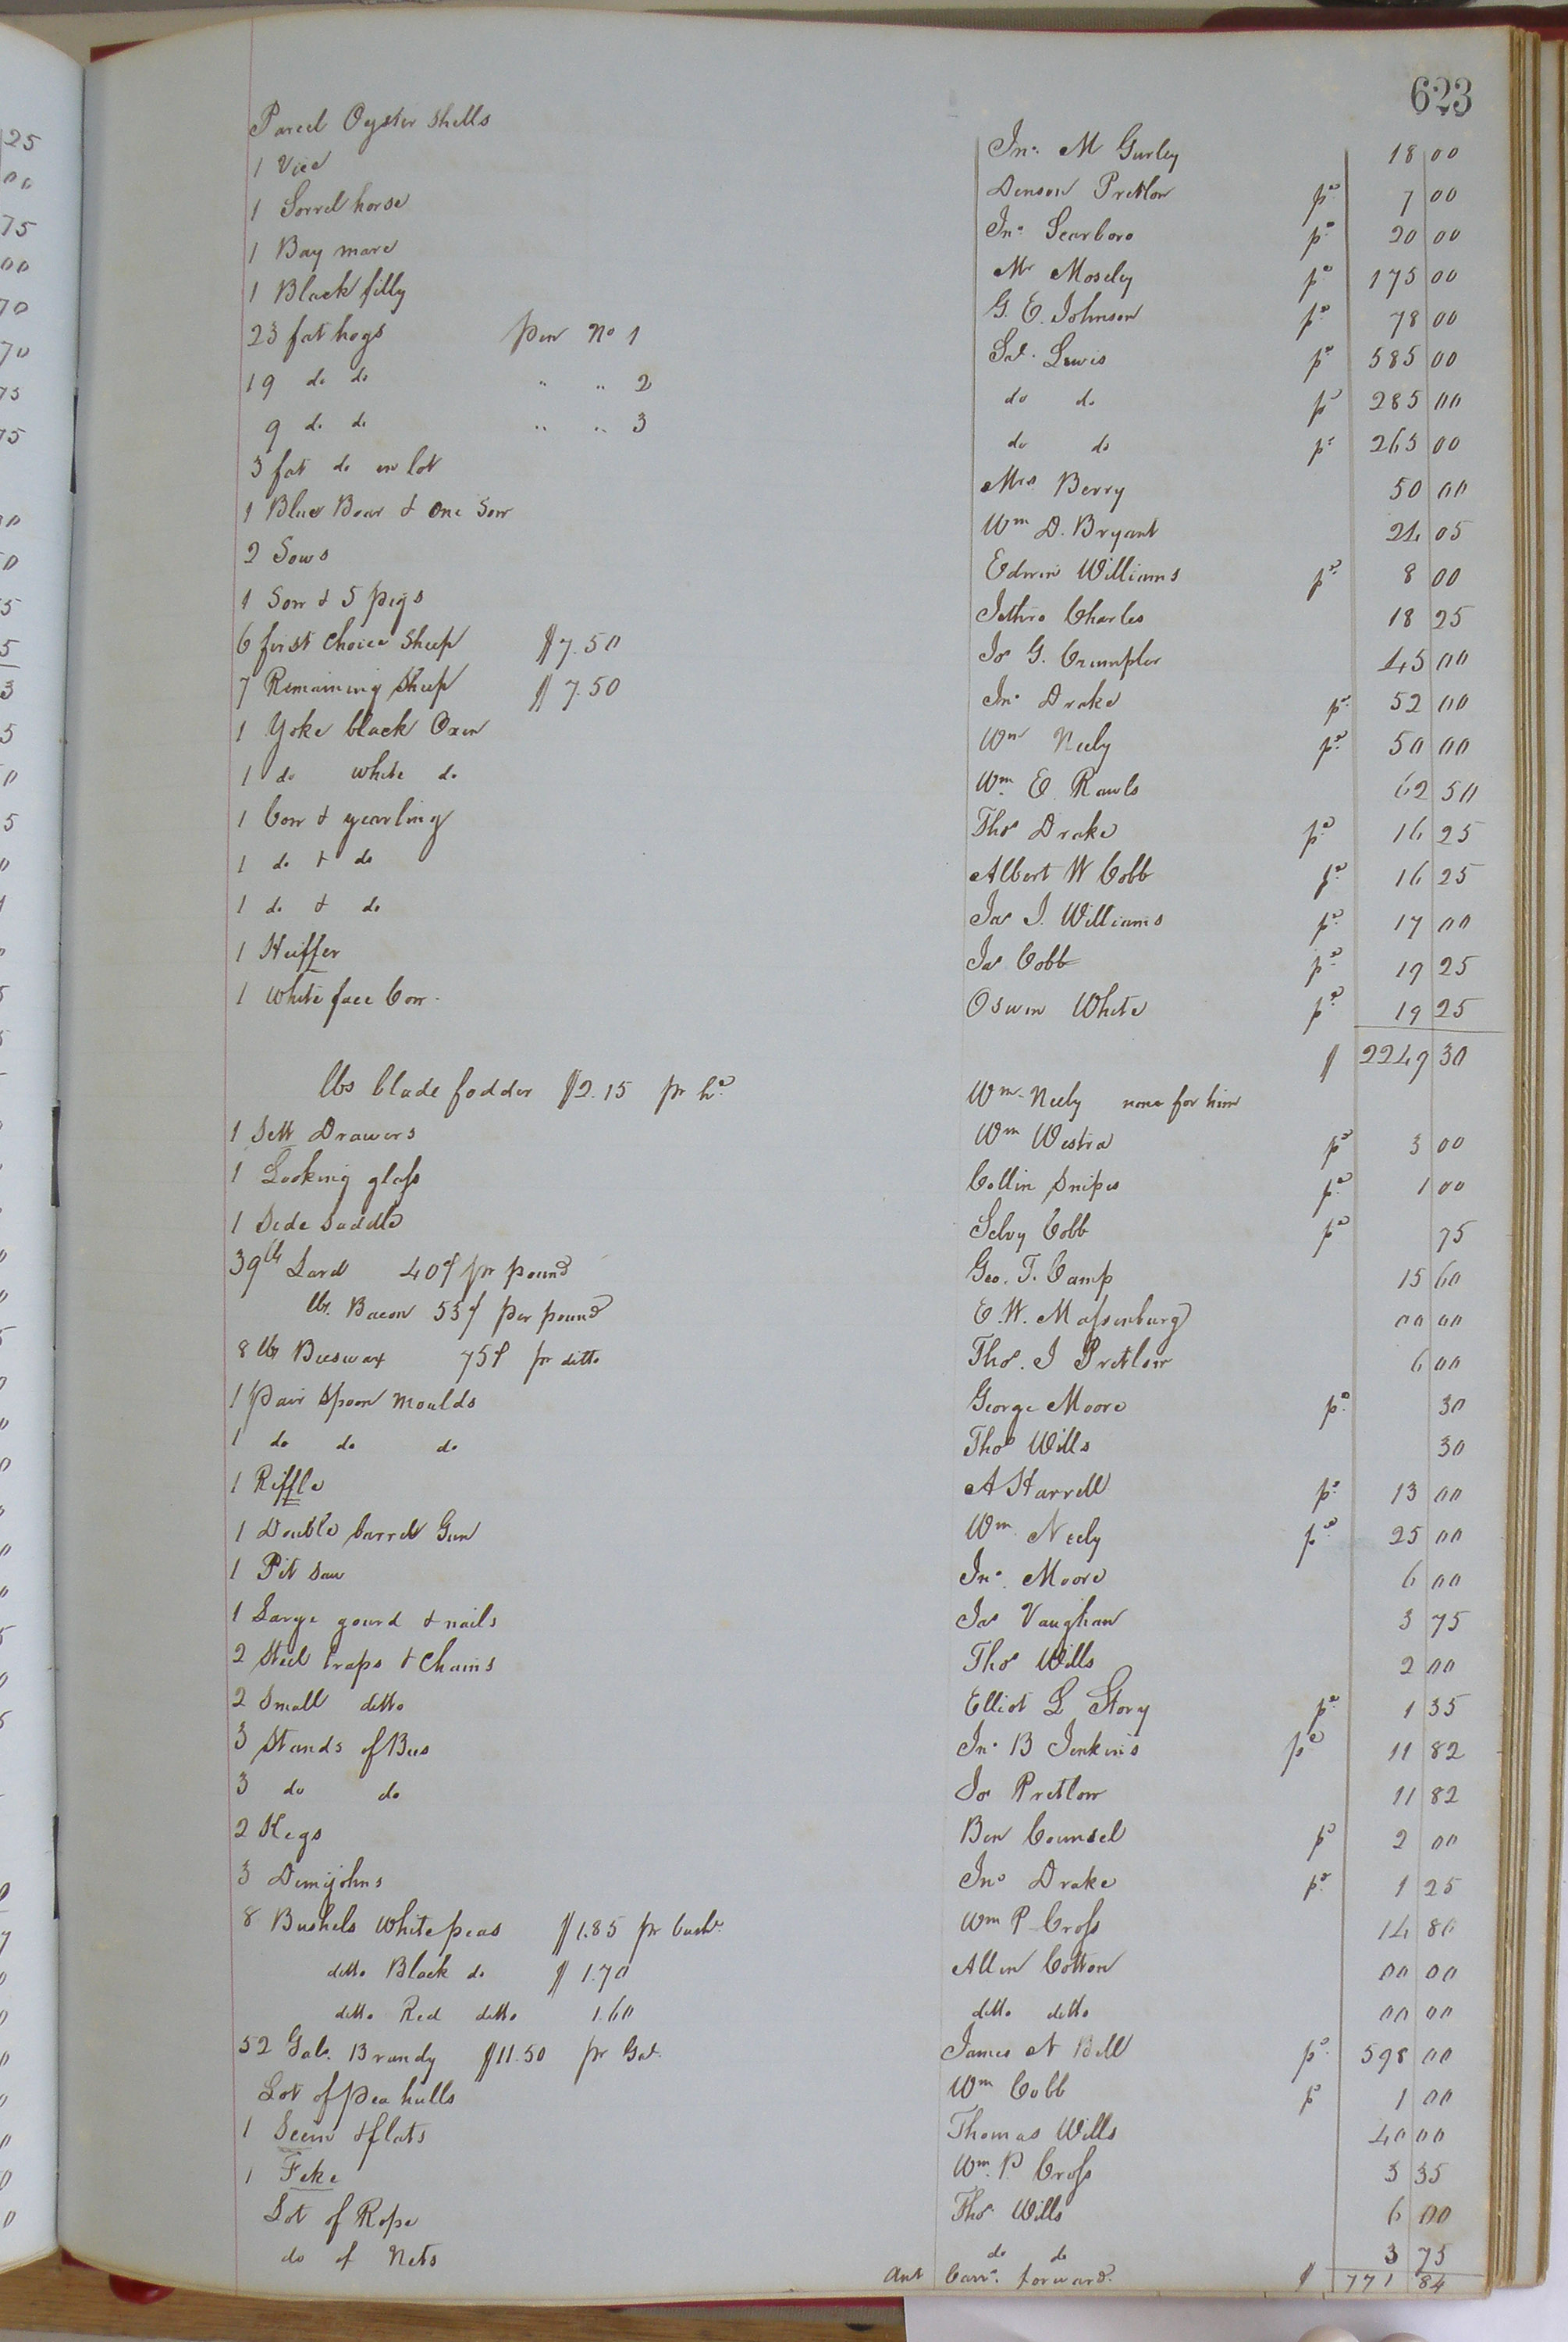 623
Parcel Oyster Shells Jno. M Gurley 18 00
1 Vice Denson Pretlow pd. 7 00
1 Sorrel horse Jno. Scarboro pd. 20 00
1 Bay mare Mr Mosely pd. 175 00
1 Black filly G. E. Johnson pd. 78 00
23 fat hogs pen No 1 Sol. Lewis pd. 585 00
19 do do " " 2 do do pd 285 00
9 do do " " 3 do do pd. 265 00
3 fat do in lot Mrs Berry 50 00
1 Blue Boar & one Sow Wm D. Bryant 24 05
2 Sows Edwin Williams pd. 8 00
1 Sow & 5 pigs Jethro Charles 18 25
6 first choice Sheep $7.50 Jos G. Crumpler 45 00
7 Remaining Sheep $7.50 Jno. Drake pd. 52 00
1 Yoke black Oxen Wm Neely pd. 50 00
1 do white do Wm. E. Rawls 62 50
1 Cow & yearling Thos Drake pd. 16 25
1 do & do Albert W Cobb pd. 16 25
1 do & do Jas J. Williams pd. 17 00
1 Heiffer Jas Cobb pd. 19 25
1 White face Cow. Oswin White pd. 19 25
$ 2249 30
lbs blade fodder $2.15 pr hd. Wm. Neely none for him
1 Sett Drawers Wm Westra pd. 3 00
1 Looking glass Collin Snipes pd. 1 00
1 Side Saddle Selvy Cobb pd. 75
39 lb Lard 40¢ pr pound Geo. T. Camp 15 60
lbs. Bacon 55¢ per pound E. W. Massenburg 00 00
8 lbs Beeswax 75¢ pr ditto Thos. J Pretlow 6 00
1 Pair Spoon Moulds George Moore pd. 30
1 do do do Thos Wills 30
1 Riffle A Harrell pd. 13 00
1 Double barrel Gun Wm. Neely pd. 25 00
1 Pit Saw Jno. Moore 6 00
1 Large gourd & nails Jas Vaughan 3 75
2 Steel traps & Chains Thos Wills 2 00
2 Small ditto Elliot L Story pd. 1 35
3 Stands of Bees Jno. B Jenkins pd 11 82
3 do do Jos Pretlow 11 82
2 Kegs Ben Counsel pd 2 00
3 Demijohns Jno Drake pd. 1 25
8 Bushels White peas $1.85 pr bush. Wm P Cross 14 80
ditto Black do $1.70 Allen Cotton 00 00
ditto Red ditto 1.60 ditto ditto 00 00
52 Gals. Brandy $11.50 pr Gal. James N Bell pd. 598 00
Lot of pea hulls Wm Cobb pd 1 00
1 Seine & flats Thomas Wills 40 00
1 Feke Wm. P. Cross 3 35
Lot of Rope Thos Wills 6 00
do of Nets do do 3 75
Amt Carrd. forward. $ 771 84